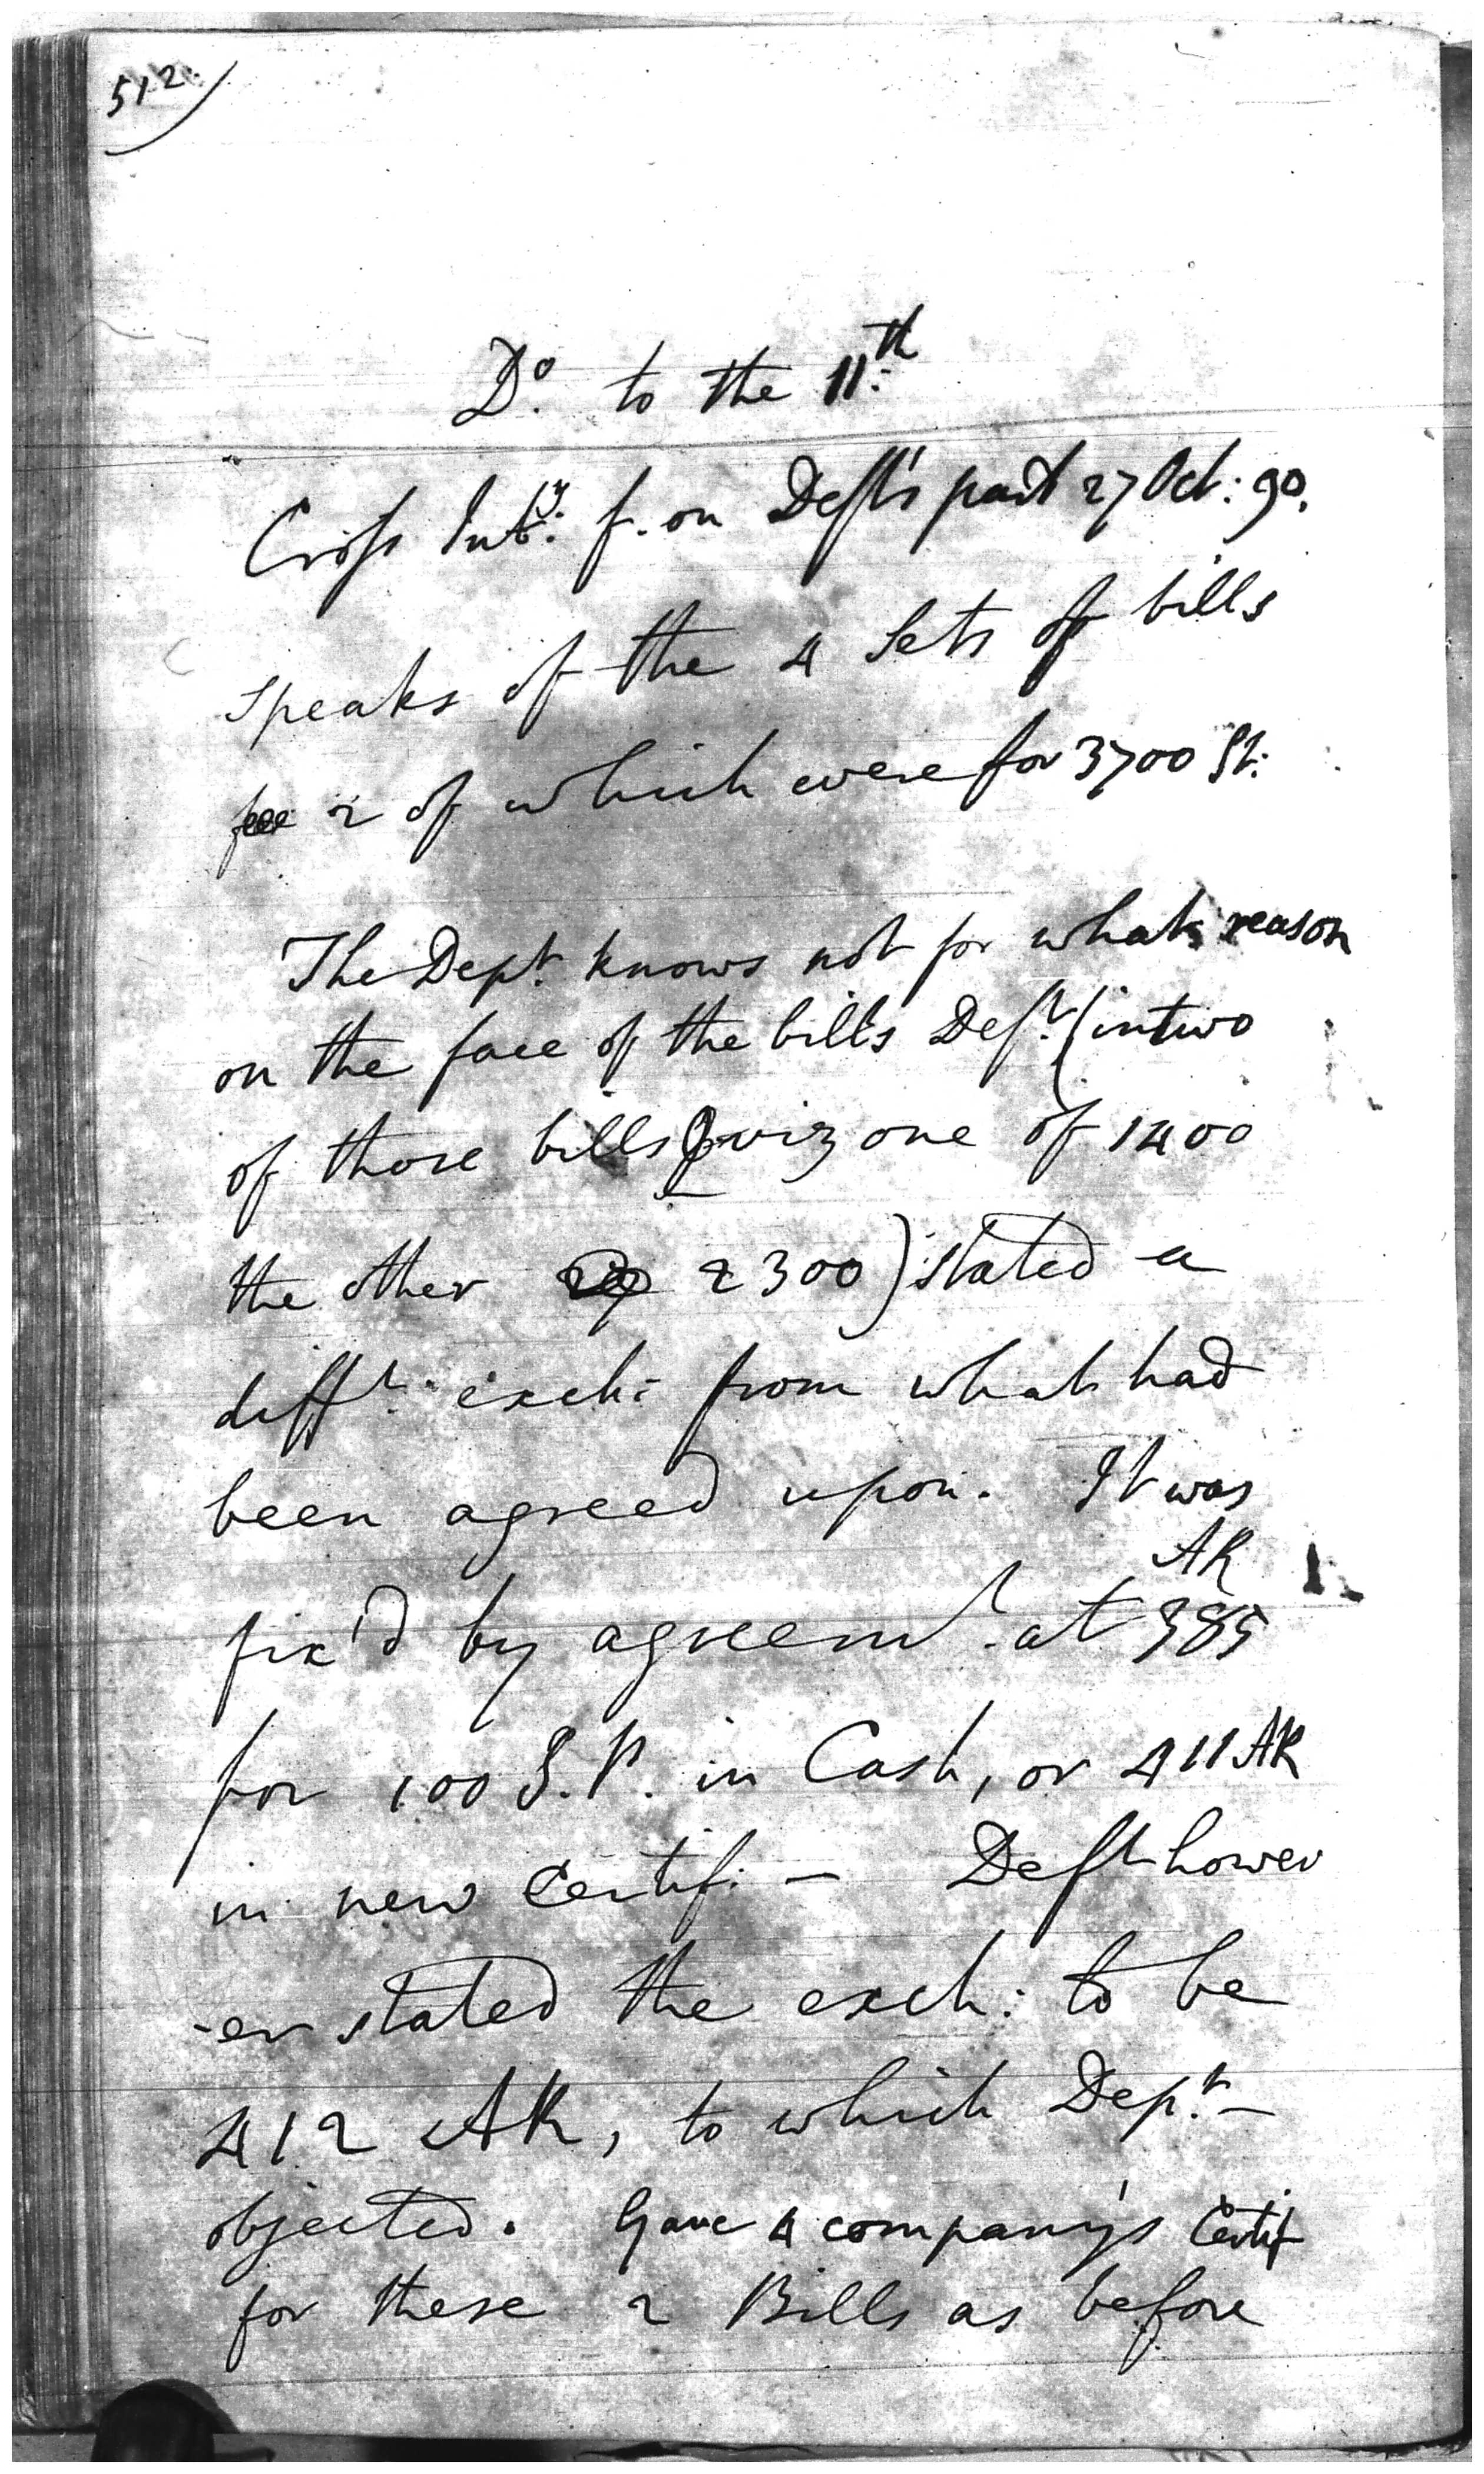 512.
Do. to the 11th
Cross Inty. f. on Deft's part 27 Oct: 90.
speaks of the 4 Sets of bills
2 of which were for 3700 St:
The Dept. knows not for what reason
on the face of the bills Deft. (in two
of those bills viz one of 1400
the other 2300) stated a
difft. exch: from what had
been agreed upon. It was
AR
fix'd by agreemt. at 385
for 100 S.P. in Cash, or 411 AR
in new Certif: — Deft howev
-er stated the exch: to be
412 AR, to which Dept. —
objected. Gave 4 company's Certif
for these 2 Bills as before